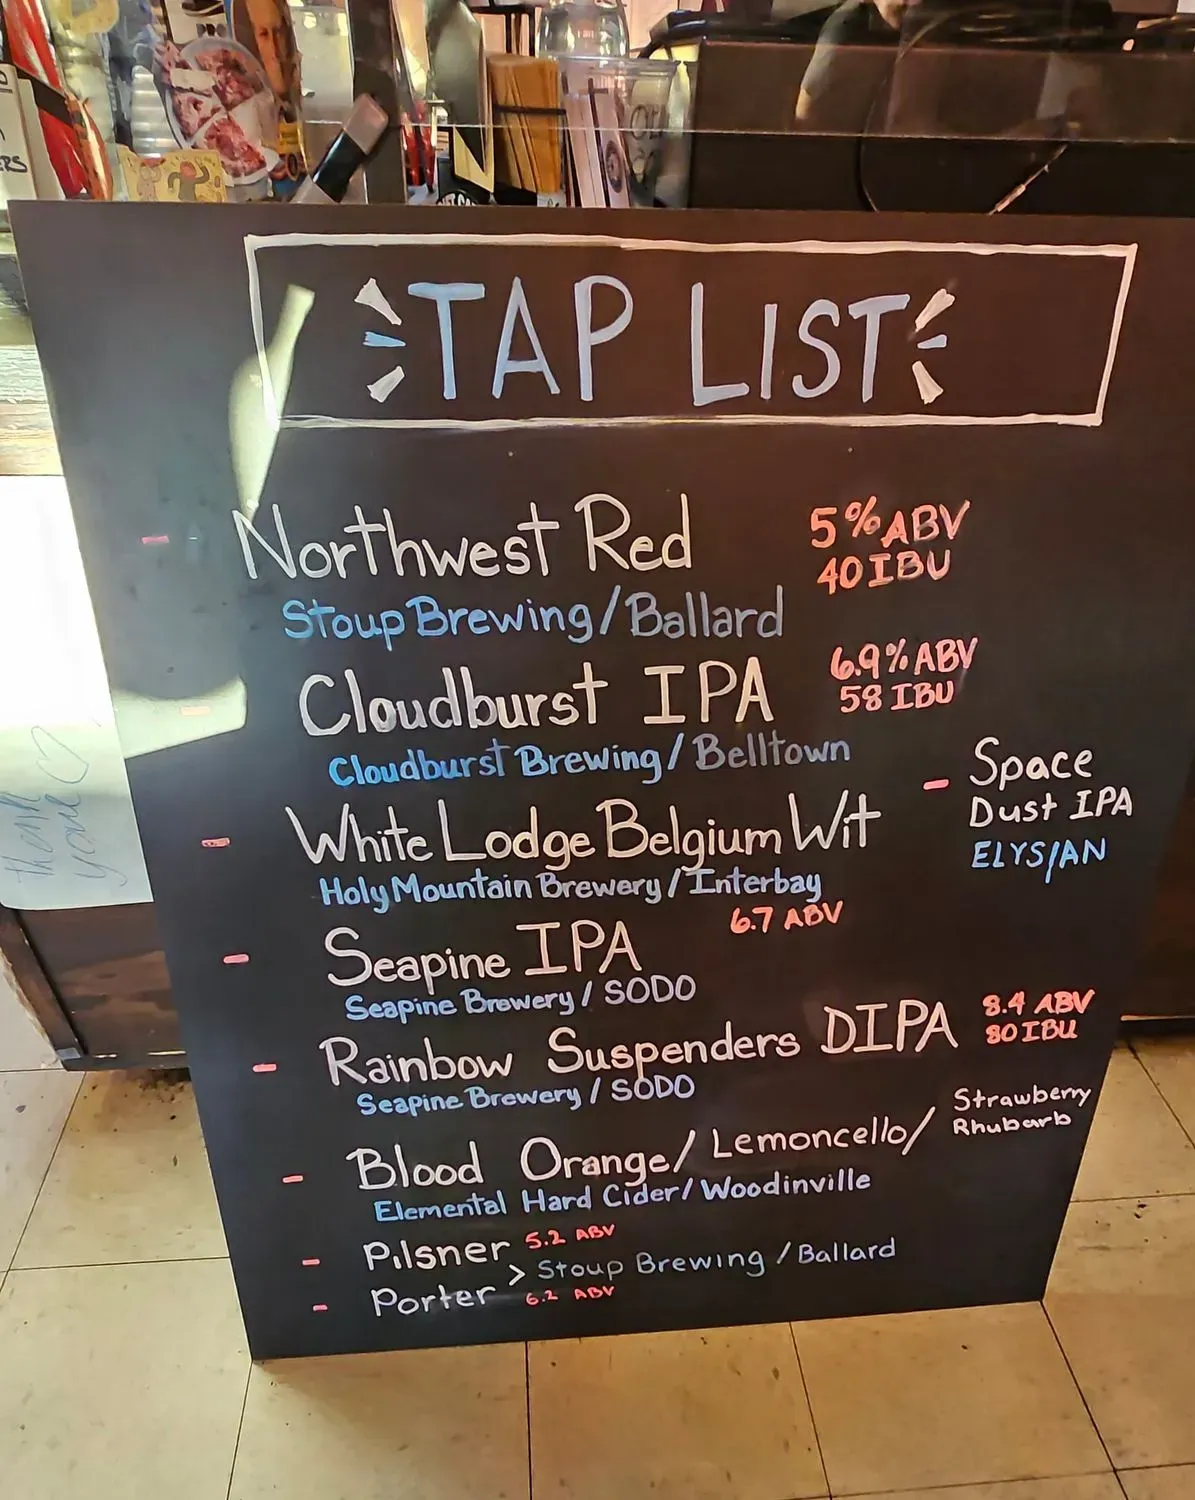 TAP LIST
Northwest Red
5% ABV
40 IBU
Stoup Brewing/Ballard
Cloudburst IPA
6.9% ABV
58 IBU
Cloudburst Brewing/Belltown
- Space
Dust IPA
ELYSIAN
White Lodge Belgium Wit
Holy Mountain Brewery/Interbay
Seapine IPA
6.7 ABV
Seapine Brewery/SODO
Rainbow Suspenders DIPA
8.4 ABV
80 IBU
Seapine Brewery/SODO
Blood Orange/Lemoncello/
Strawberry
Rhubarb
Elemental Hard Cider/Woodinville
Pilsner 5.2 ABV
> Stoup Brewing/Ballard
Porter 6.2 ABV
thank
you